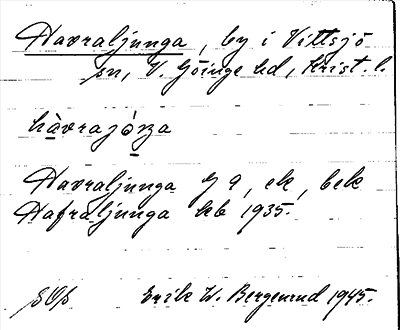 Havraljunga, by i Vittsjö
sn, V. Göinge hd, Krist. l.
hàvrajóŋa
Havraljunga G 9, ek, bek
Hafraljunga kb 1935.
Erik W. Bergenrud 1945.